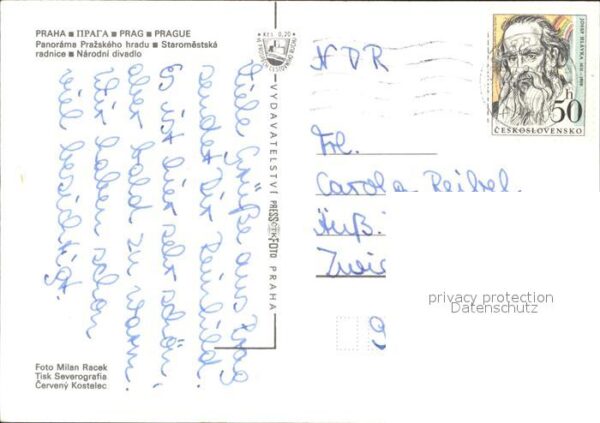 PRAHA ■ ПРАГА ■ PRAG ■ PRAGUE
Panoráma Pražského hradu ■ Staroměstská
radnice ■ Národní divadlo
Kčs 0,20
VYDAVATELSTVÍ PRESSFOTO PRAHA
Liebe Grüße aus Prag
sendet Dir Reinhild.
Es ist hier sehr schön,
aber bald zu warm.
Wir haben schon
viel besichtigt.
Foto Milan Racek
Tisk Severografia
Červený Kostelec
JOSEF HLÁVKA 1831-1908
50 h
ČESKOSLOVENSKO
NDR
Frl.
Carola
Äuß
Zwic
9
privacy protection
Datenschutz